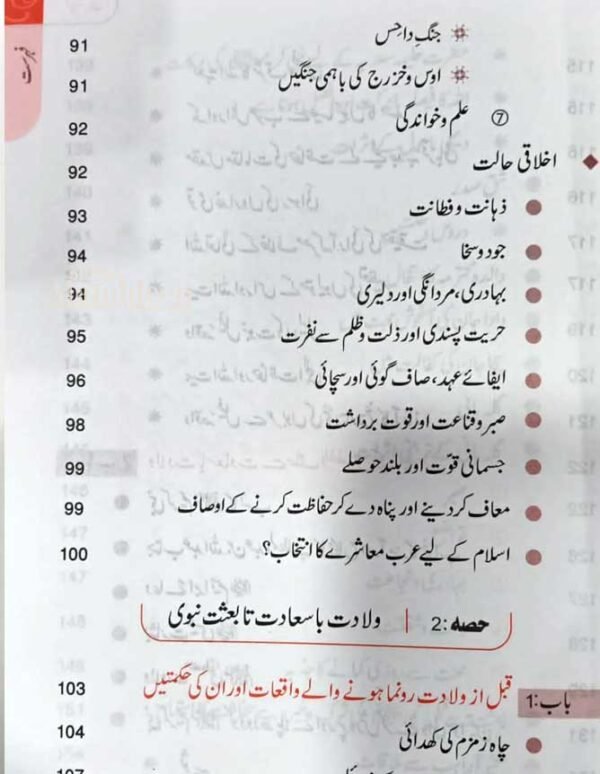 فہرست
جنگِ داحِس 91
اوس و خزرج کی باہمی جنگیں 91
⑦ علم و خواندگی 92
اخلاقی حالت 92
ذہانت و فطانت 93
جود و سخا 94
بہادری، مردانگی اور دلیری 94
حریت پسندی اور ذلت و ظلم سے نفرت 95
ایفائے عہد، صاف گوئی اور سچائی 96
صبر و قناعت اور قوت برداشت 98
جسمانی قوّت اور بلند حوصلے 99
معاف کر دینے اور پناہ دے کر حفاظت کرنے کے اوصاف 99
اسلام کے لیے عرب معاشرے کا انتخاب؟ 100
حصہ :2 | ولادت باسعادت تا بعثت نبوی
باب :1 قبل از ولادت رونما ہونے والے واقعات اور ان کی حکمتیں 103
چاہ زمزم کی کھدائی 104
107